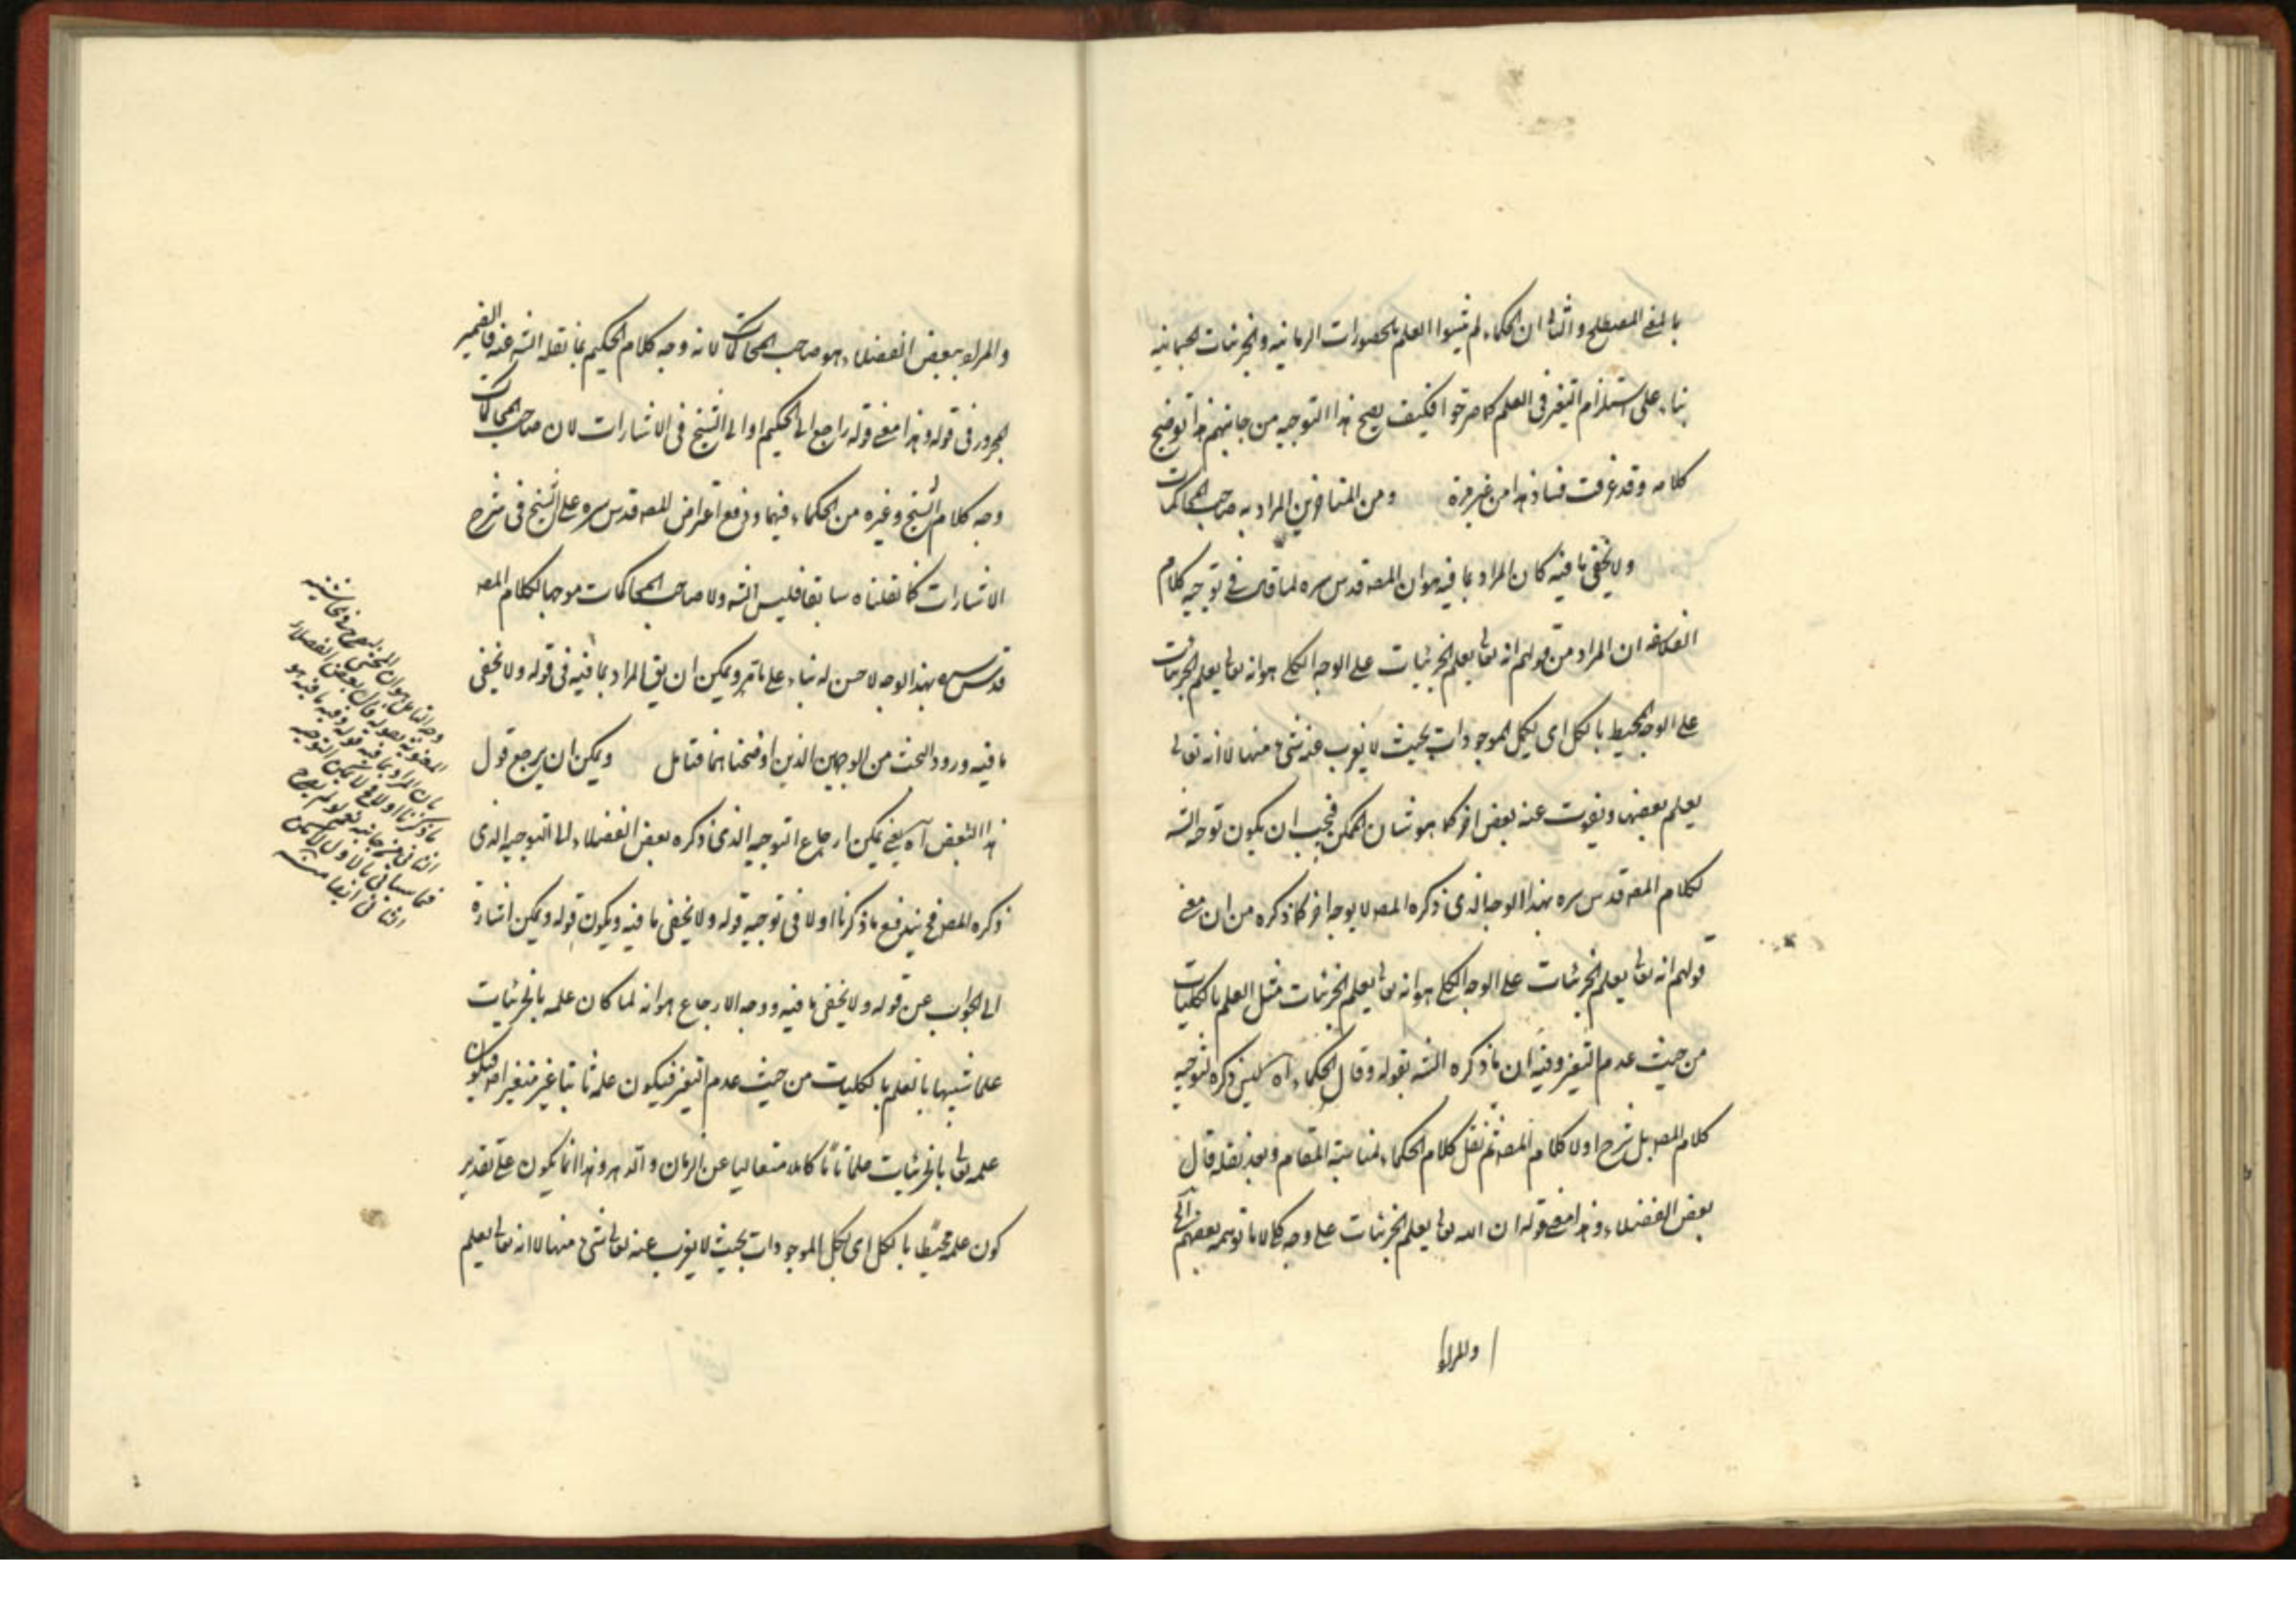 بالمعنى المصطلح والثانى ان الحكماء لم يثبتوا العلم بالحضورات الزمانية والجزئيات الجسمانية
بناء على استلزام التغير فى العلم كما صرحوا فكيف يصح هذا التوجيه من جانبهم هذا توضيح
كلامه وقد عرفت فساد هذا من غير مرة ومن المتاخرين المراد به صاحب المحاكمات
ولا يخفى ما فيه كان المراد بما فيه هو ان المصه قدس سره لما قال فى توجيه كلام
الفلاسفه ان المراد من قولهم انه تعالى يعلم الجزئيات على الوجه الكلى هو انه تعالى يعلم الجزئيات
على الوجه المحيط بالكل اى لكل الموجودات بحيث لا يغرب عنه شىء منها لا انه تعالى
يعلم بعضها ويفوت عنه بعض اخر كما هو شان الممكن فيجب ان يكون توجه الشه
لكلام المصه قدس سره بهذا الوجه الذى ذكره المصه لا بوجه اخر كما ذكره من ان معنى
قولهم انه تعالى يعلم الجزئيات على الوجه الكلى هو انه تعالى يعلم الجزئيات مثل العلم بالكليات
من حيث عدم التغير وفيه ان ما ذكره الشه بقوله وقال الحكماء اه ليس ذكره لتوجيه
كلام المصه بل شرح اولا كلام المصه ثم نقل كلام الحكماء لمناسبة المقام وبعد نقله قال
بعض الفضلاء وهذا معنى قوله ان الله تعالى يعلم الجزئيات على وجه كلى لا ما توهمه بعضهم الى
والمراد
والمراد ببعض الفضلاء هو صاحب المحاكمات لانه وجه كلام الحكيم بما نقله الشه عنه فالضمير
المجرور فى قوله وهذا معنى قوله راجع الى الحكيم او الى الشيخ فى الاشارات لان صاحب المحاكمات
وجه كلام الشيخ وغيره من الحكماء فيهما ودفع اعتراض المصه قدس سره على الشيخ فى شرح
الاشارات كما نقلناه سابقا فليس الشه ولا صاحب المحاكمات موجها لكلام المصه
قدس سره بهذا الوجه لا حسن له بناء على ما مر ويمكن ان يق المراد بما فيه فى قوله ولا يخفى
ما فيه ورود البحث من الوجهين الذين اوضحناهما فتامل ويمكن ان يرجع قول
هذا البعض آه يعنى يمكن ارجاع التوجيه الذى ذكره بعض الفضلاء الى التوجيه الذى
ذكره المصه فح يندفع ما ذكرنا اولا فى توجيه قوله ولا يخفى ما فيه ويكون قوله ويمكن اشارة
الى الجواب عن قوله ولا يخفى ما فيه ووجه الارجاع هو انه لما كان علمه بالجزئيات
علما شبيها بالعلم بالكليات من حيث عدم التغير فيكون علمه ثابتا غير متغير اصلا فيكون
علمه تعالى بالجزئيات علما تاما كاملا متعاليا عن الزمان والدهر وهذا انما يكون على تقدير
كون علمه محيطا بالكل اى لكل الموجودات بحيث لا يغرب عنه تعالى شىء منها لا انه تعالى يعلم